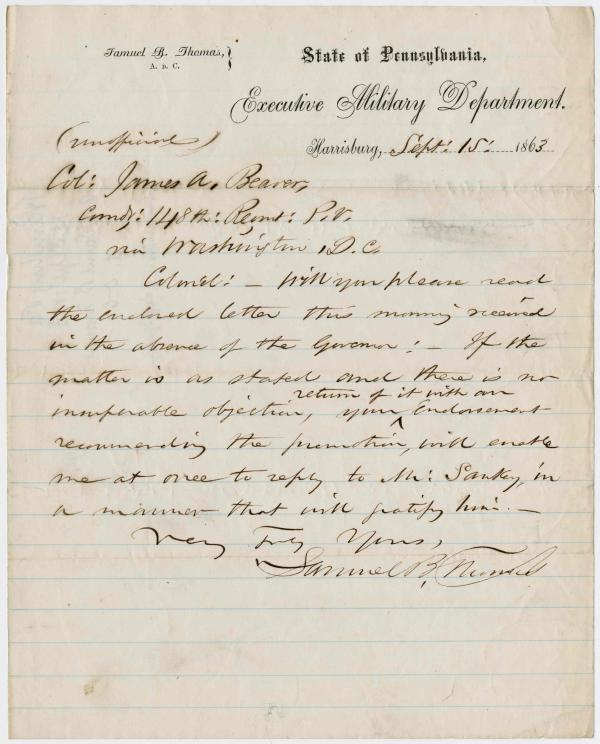 Samuel B. Thomas,
A. D. C.
State of Pennsylvania,
Executive Military Department.
Harrisburg, Sept: 15: 1863
(unofficial)
Col: James A. Beaver,
Comdg: 148th: Regmt: P.V.
via Washington, D.C.
Colonel: – Will you please read
the enclosed letter this morning received
in the absence of the Governor: – If the
matter is as stated and there is no
insuperable objection, your return of it with an endorsement
recommending the promotion, will enable
me at once to reply to Mr: Sankey, in
a manner that will gratify him. –
Very Truly Yours,
Samuel B. Thomas